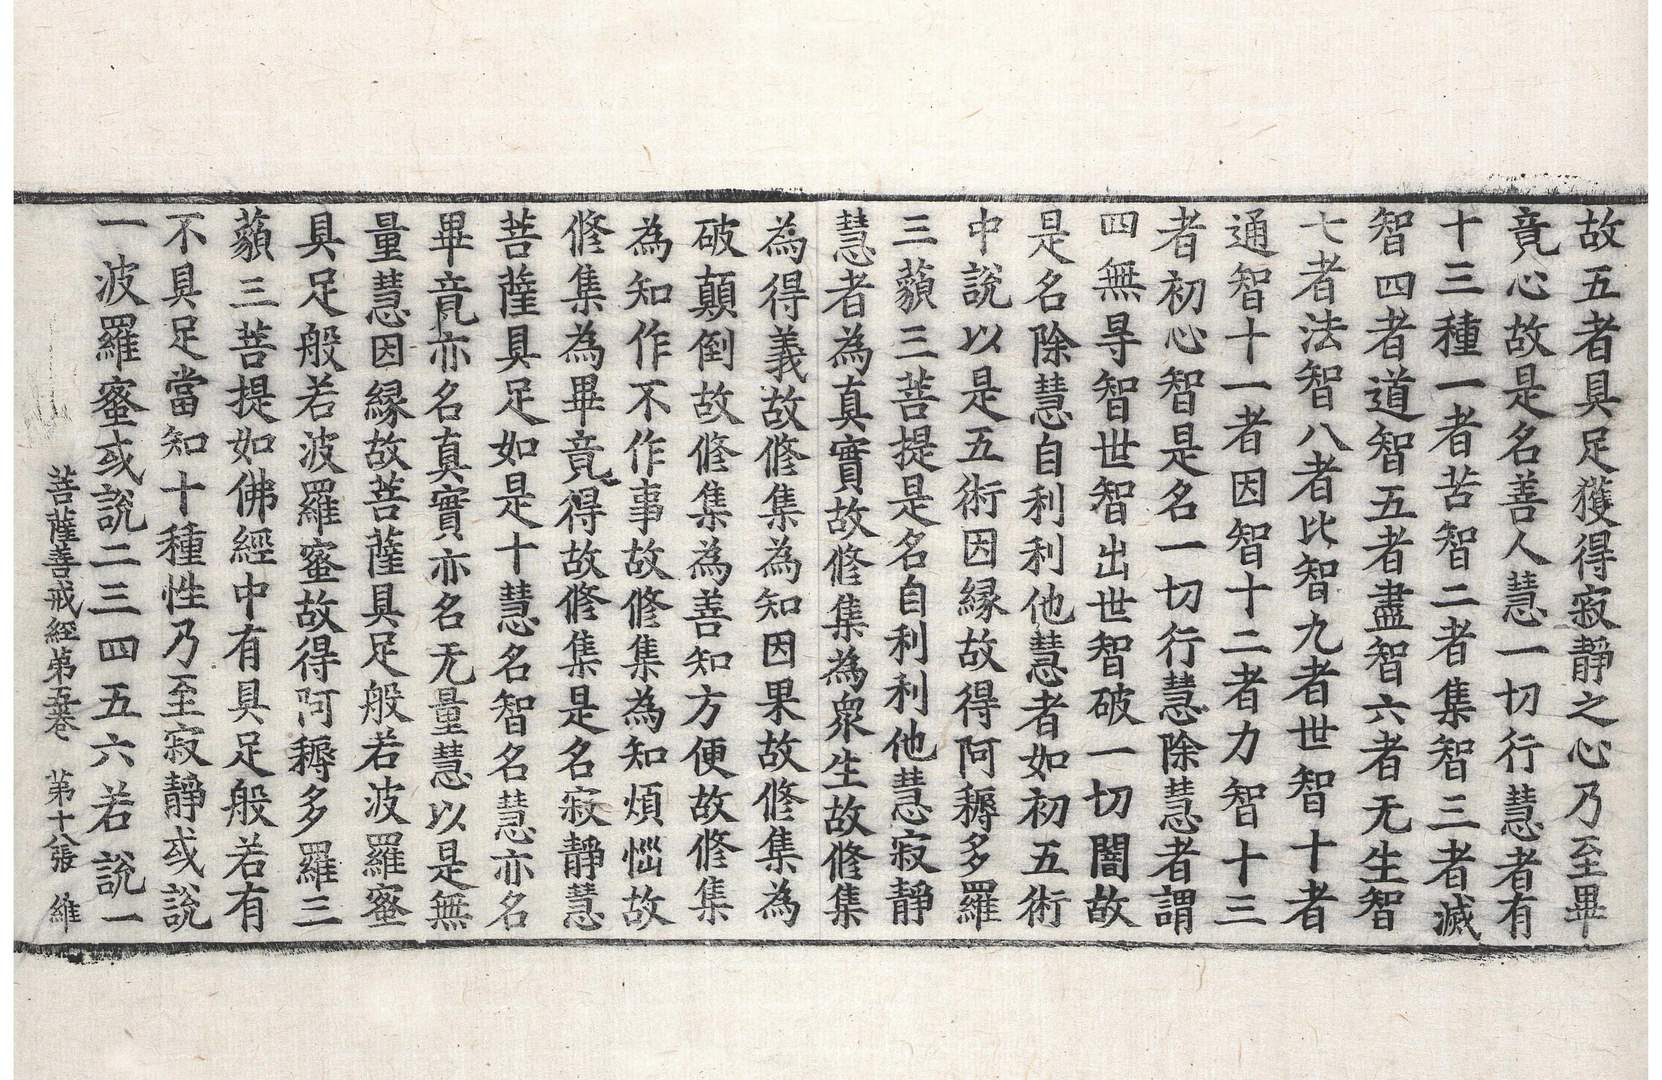 故五者具足獲得寂靜之心乃至畢
竟心故是名善人慧一切行慧者有
十三種一者苦智二者集智三者滅
智四者道智五者盡智六者无生智
七者法智八者比智九者世智十者
通智十一者因智十二者力智十三
者初心智是名一切行慧除慧者謂
四無㝵智世智出世智破一切闇故
是名除慧自利利他慧者如初五術
中說以是五術因緣故得阿耨多羅
三藐三菩提是名自利利他慧寂靜
慧者為真實故修集為衆生故修集
為得義故修集為知因果故修集為
破顛倒故修集為善知方便故修集
為知作不作事故修集為知煩惱故
修集為畢竟得故修集是名寂靜慧
菩薩具足如是十慧名智名慧亦名
畢竟亦名真實亦名无量慧以是無
量慧因緣故菩薩具足般若波羅蜜
具足般若波羅蜜故得阿耨多羅三
藐三菩提如佛經中有具足般若有
不具足當知十種性乃至寂靜或說
一波羅蜜或說二三四五六若說一
菩薩善戒經第五卷 第十八張 維